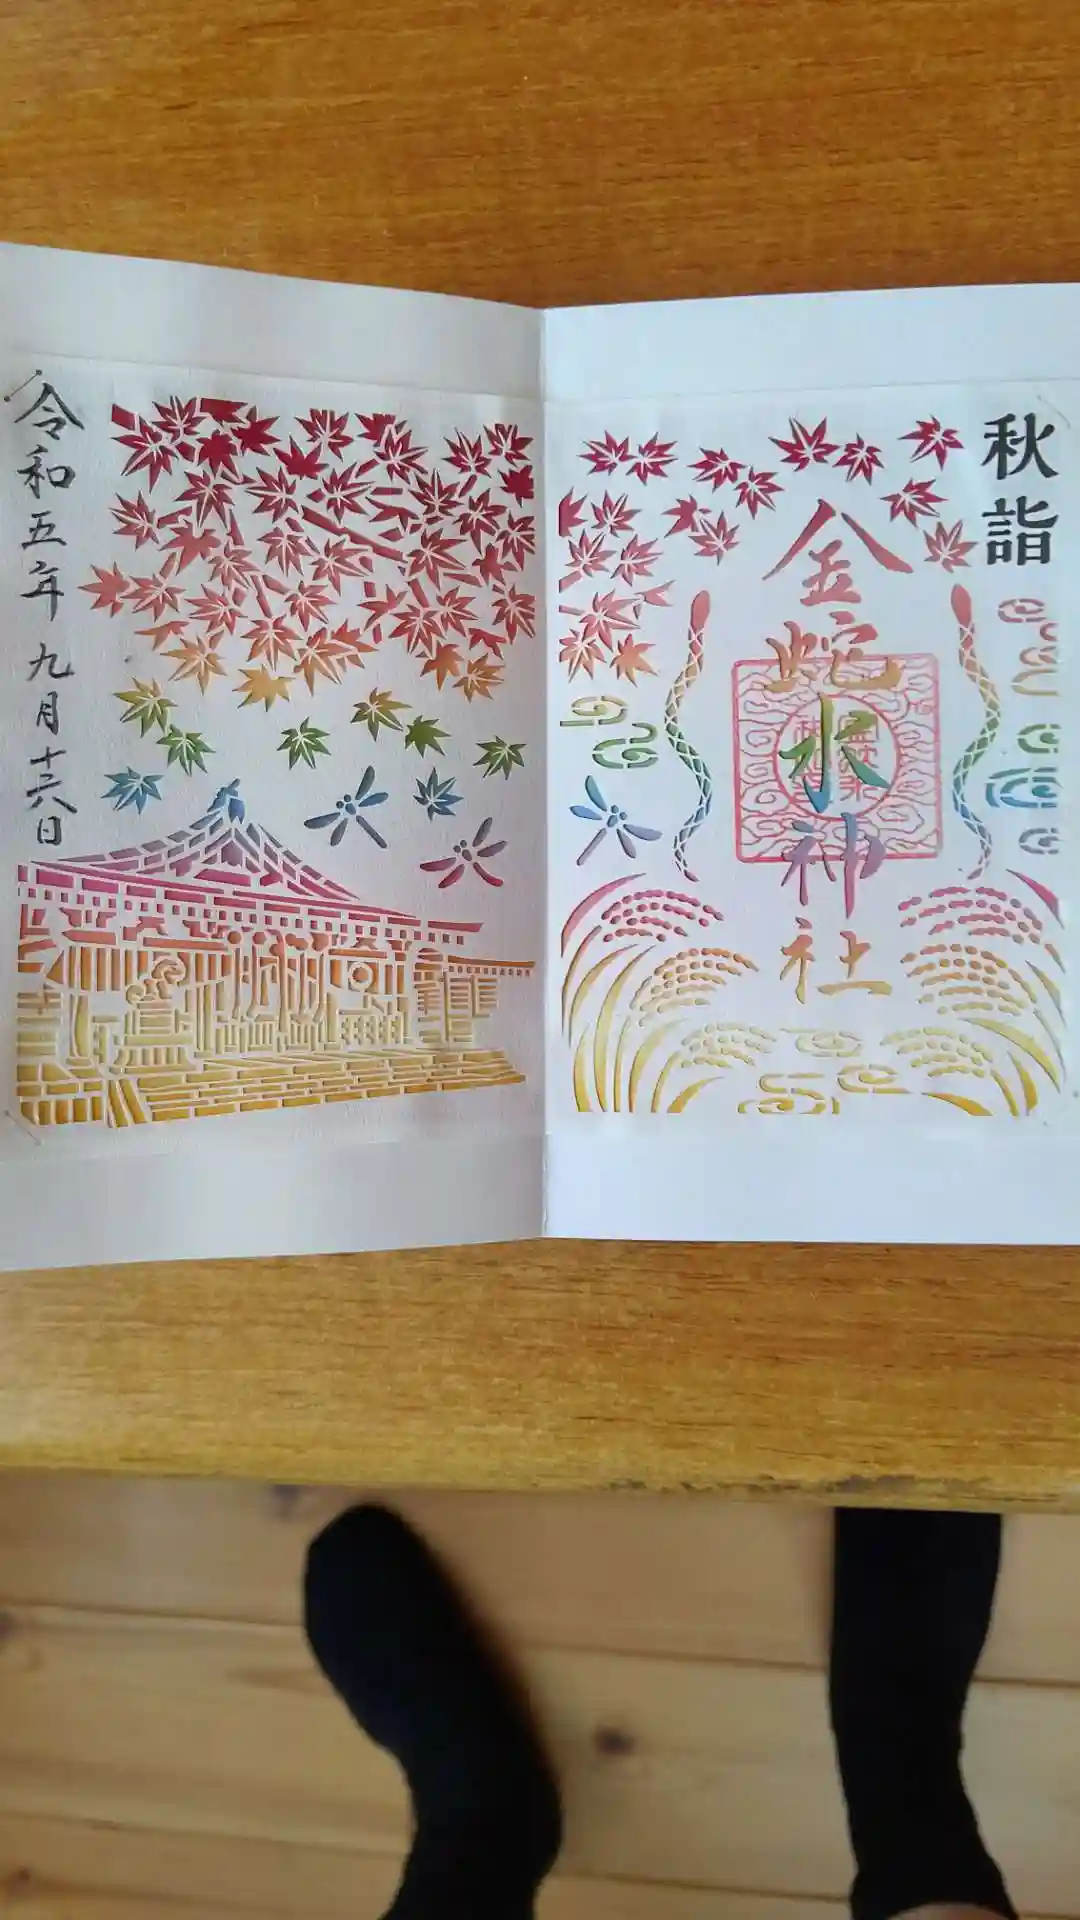 秋詣
金蛇水神社
令和五年九月十六日